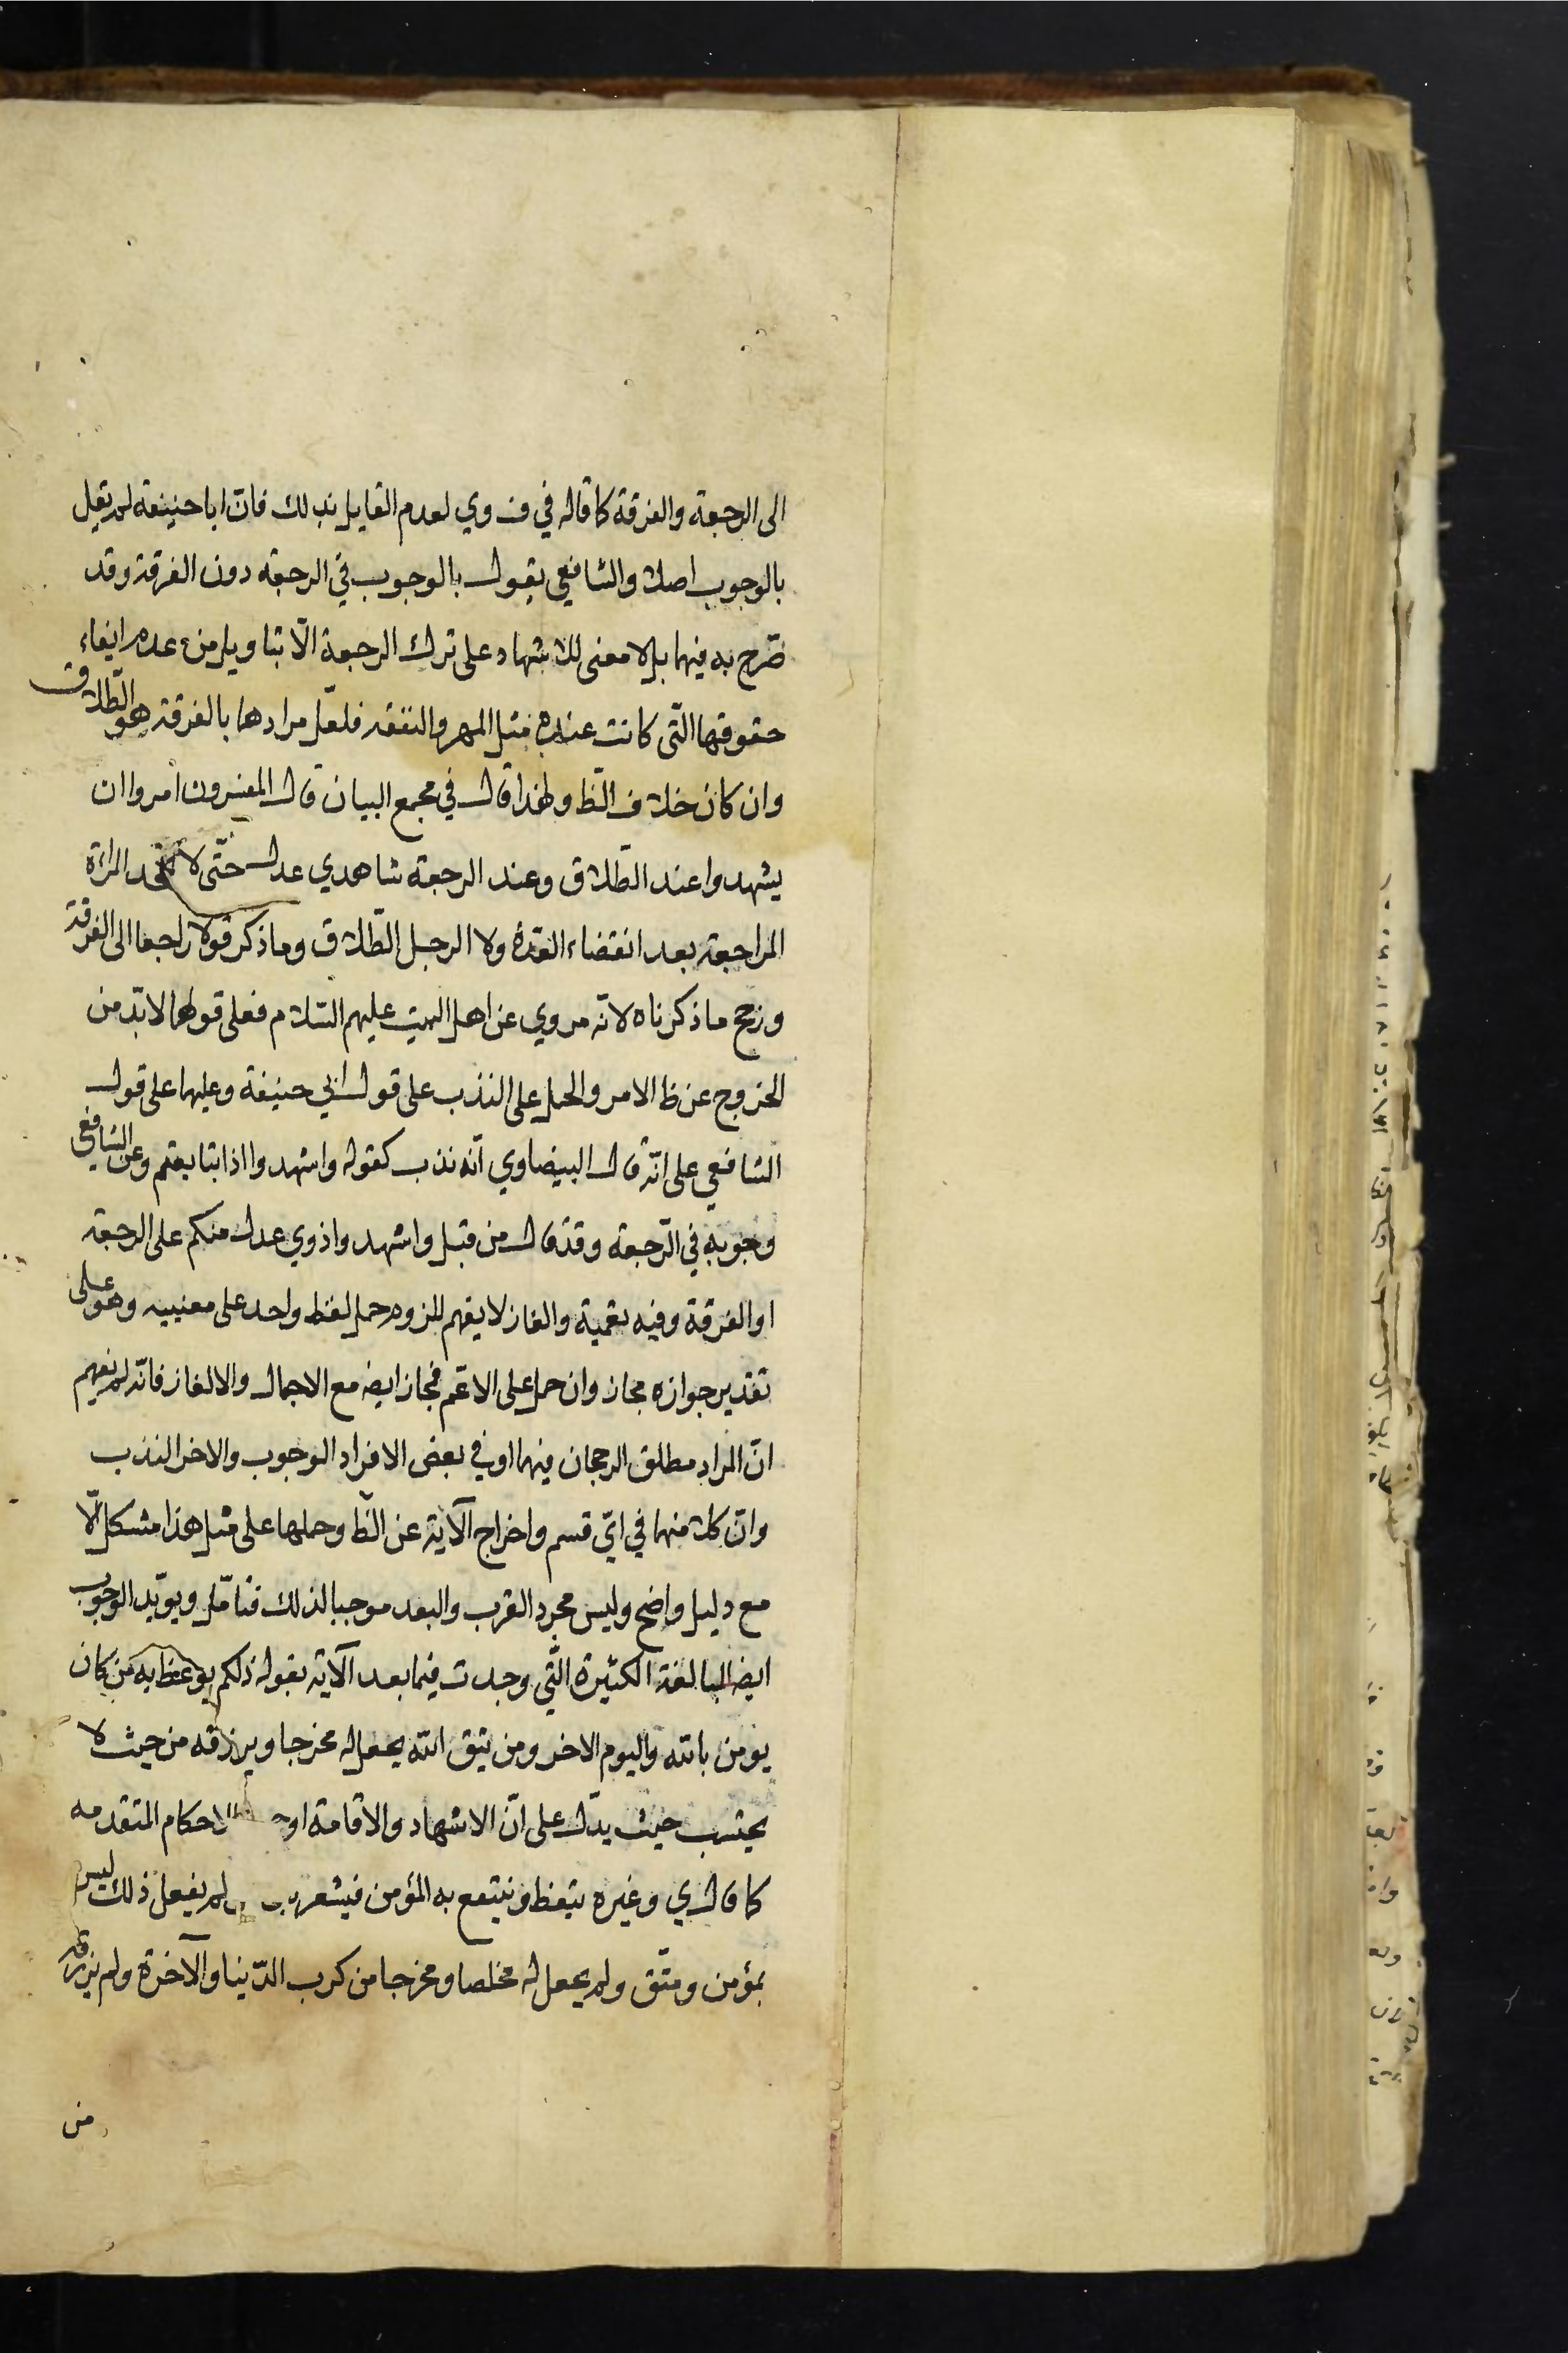 الى الرجعة والفرقة كما قاله في ف وي لعدم القايل بذلك فانّ ابا حنيفة لم يقل
بالوجوب اصلا والشافعي يقول بالوجوب في الرجعة دون الفرقة وقد
صرّح به فيهما بل لا معنى للاشهاد على ترك الرجعة الّا بتاويل من عدم ايفاء
حقوقها الّتي كانت عنده مثل المهر والنفقه فلعلّ مرادهما بالفرقة هو الطّلاق
وان كان خلاف الظ ولهذا قال في مجمع البيان قال المفسرون امروا ان
يشهدوا عند الطّلاق وعند الرجعة شاهدي عدل حتّى لا تجحد المراة
المراجعة بعد انقضاء العدّة ولا الرجل الطّلاق وما ذكر قولا راجعا الى الفرقة
ورجح ما ذكرناه لانّه مروي عن اهل البيت عليهم السّلام فعلى قولهما لا بدّ من
الخروج عن ظ الامر والحمل على الندب على قول ابي حنيفة وعليهما على قول
الشافعي على انّه قال البيضاوي انّه ندب كقوله واشهدوا اذا تبايعتم وعن الشافعي
وجوبه في الرّجعة وقد قال من قبل واشهدوا ذوي عدل منكم على الرجعة
او الفرقة وفيه تعمية والغاز لا يفهم للزوم حمل لفظ واحد على معنييه وهو على
تقدير جوازه مجاز وان حمل على الاعّم فمجاز ايضا مع الاجمال والالغاز فانّه لم يفهم
انّ المراد مطلق الرجحان فيهما او في بعض الافراد الوجوب والاخر الندب
وانّ كلا منهما في ايّ قسم واخراج الآية عن الظ وحملها على مثل هذا مشكل الّا
مع دليل واضح وليس مجرد القرب والبعد موجبا لذلك فتامّل ويويّد الوجوب
ايضا المبالغة الكثيرة الّتي وجدت فيما بعد الآية بقوله ذلكم يوعظ به من كان
يومن بالله واليوم الاخر ومن يتق الله يجعل له مخرجا ويرزقه من حيث لا
يحتسب حيث يدّل على انّ الاشهاد والاقامة او الاحكام المتقدمه
كما قال ي وغيره يتعظ وينتفع به المؤمن فيشعر لم يفعل ذلك ليس
بمؤمن ومتّق ولم يجعل له مخلصا ومخرجا من كرب الدّنيا والآخرة ولم يرزقه
من